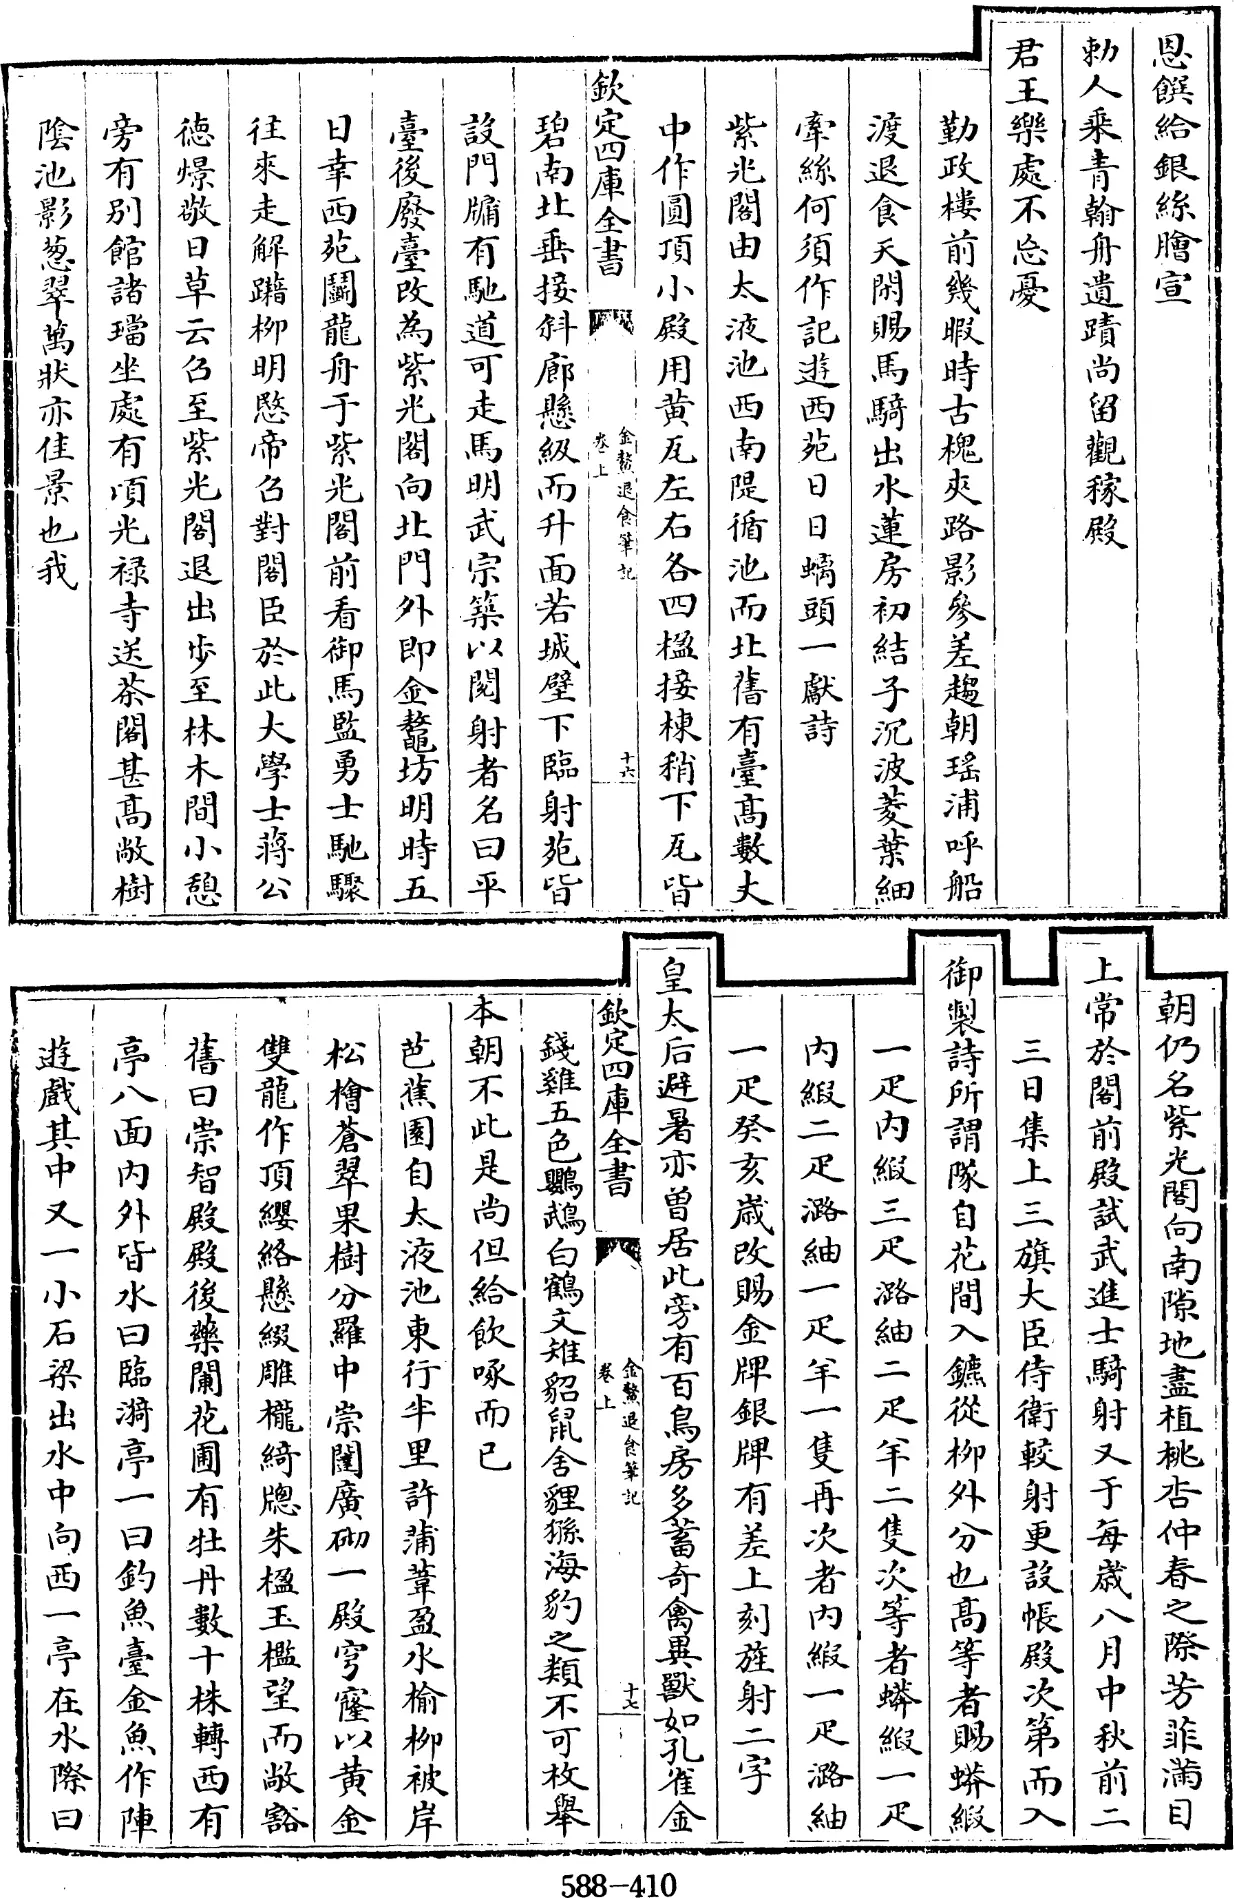 恩饌給銀絲膾宣
勅人乘青翰舟遺蹟尚留觀稼殿
君王樂處不忘憂
勤政樓前幾暇時古槐夾路影參差趨朝瑤浦呼船
渡退食天閑賜馬騎出水蓮房初結子沉波菱葉細
牽絲何須作記遊西苑日日螭頭一獻詩
紫光閣由太液池西南隄循池而北舊有臺髙數丈
中作圓頂小殿用黄瓦左右各四楹接棟稍下瓦皆
欽定四庫全書
金鰲退食筆記
卷上
十六
碧南北垂接斜廊懸級而升面若城壁下臨射苑皆
設門牖有馳道可走馬明武宗築以閱射者名曰平
臺後廢臺改為紫光閣向北門外即金鰲坊明時五
日幸西苑鬭龍舟于紫光閣前看御馬監勇士馳驟
往來走解躤柳明愍帝召對閣臣於此大學士蔣公
德璟敬日草云召至紫光閣退出步至林木間小憩
旁有別館諸璫坐處有頃光禄寺送茶閣甚髙敞樹
隂池影葱翠萬狀亦佳景也我
朝仍名紫光閣向南隙地盡植桃杏仲春之際芳菲滿目
上常於閣前殿試武進士騎射又于每歲八月中秋前二
三日集上三旗大臣侍衛較射更設帳殿次第而入
御製詩所謂隊自花間入鑣從柳外分也髙等者賜蟒緞
一疋内緞三疋潞紬二疋羊二隻次等者蟒緞一疋
内緞二疋潞紬一疋羊一隻再次者内緞一疋潞紬
一疋癸亥歲改賜金牌銀牌有差上刻旌射二字
皇太后避暑亦曽居此旁有百鳥房多蓄奇禽異獸如孔雀金
欽定四庫全書
金鰲退食筆記
卷上
十七
錢雞五色鸚鵡白鶴文雉貂鼠舍貍猻海豹之類不可枚舉
本朝不此是尚但給飲啄而已
芭蕉園自太液池東行半里許蒲葦盈水榆柳被岸
松檜蒼翠果樹分羅中崇闥廣砌一殿穹窿以黄金
雙龍作頂纓絡懸綴雕櫳綺牕朱楹玉檻望而敞豁
舊曰崇智殿殿後藥闌花圃有牡丹數十株轉西有
亭八面内外皆水曰臨漪亭一曰釣魚臺金魚作陣
遊戲其中又一小石梁出水中向西一亭在水際曰
588-410